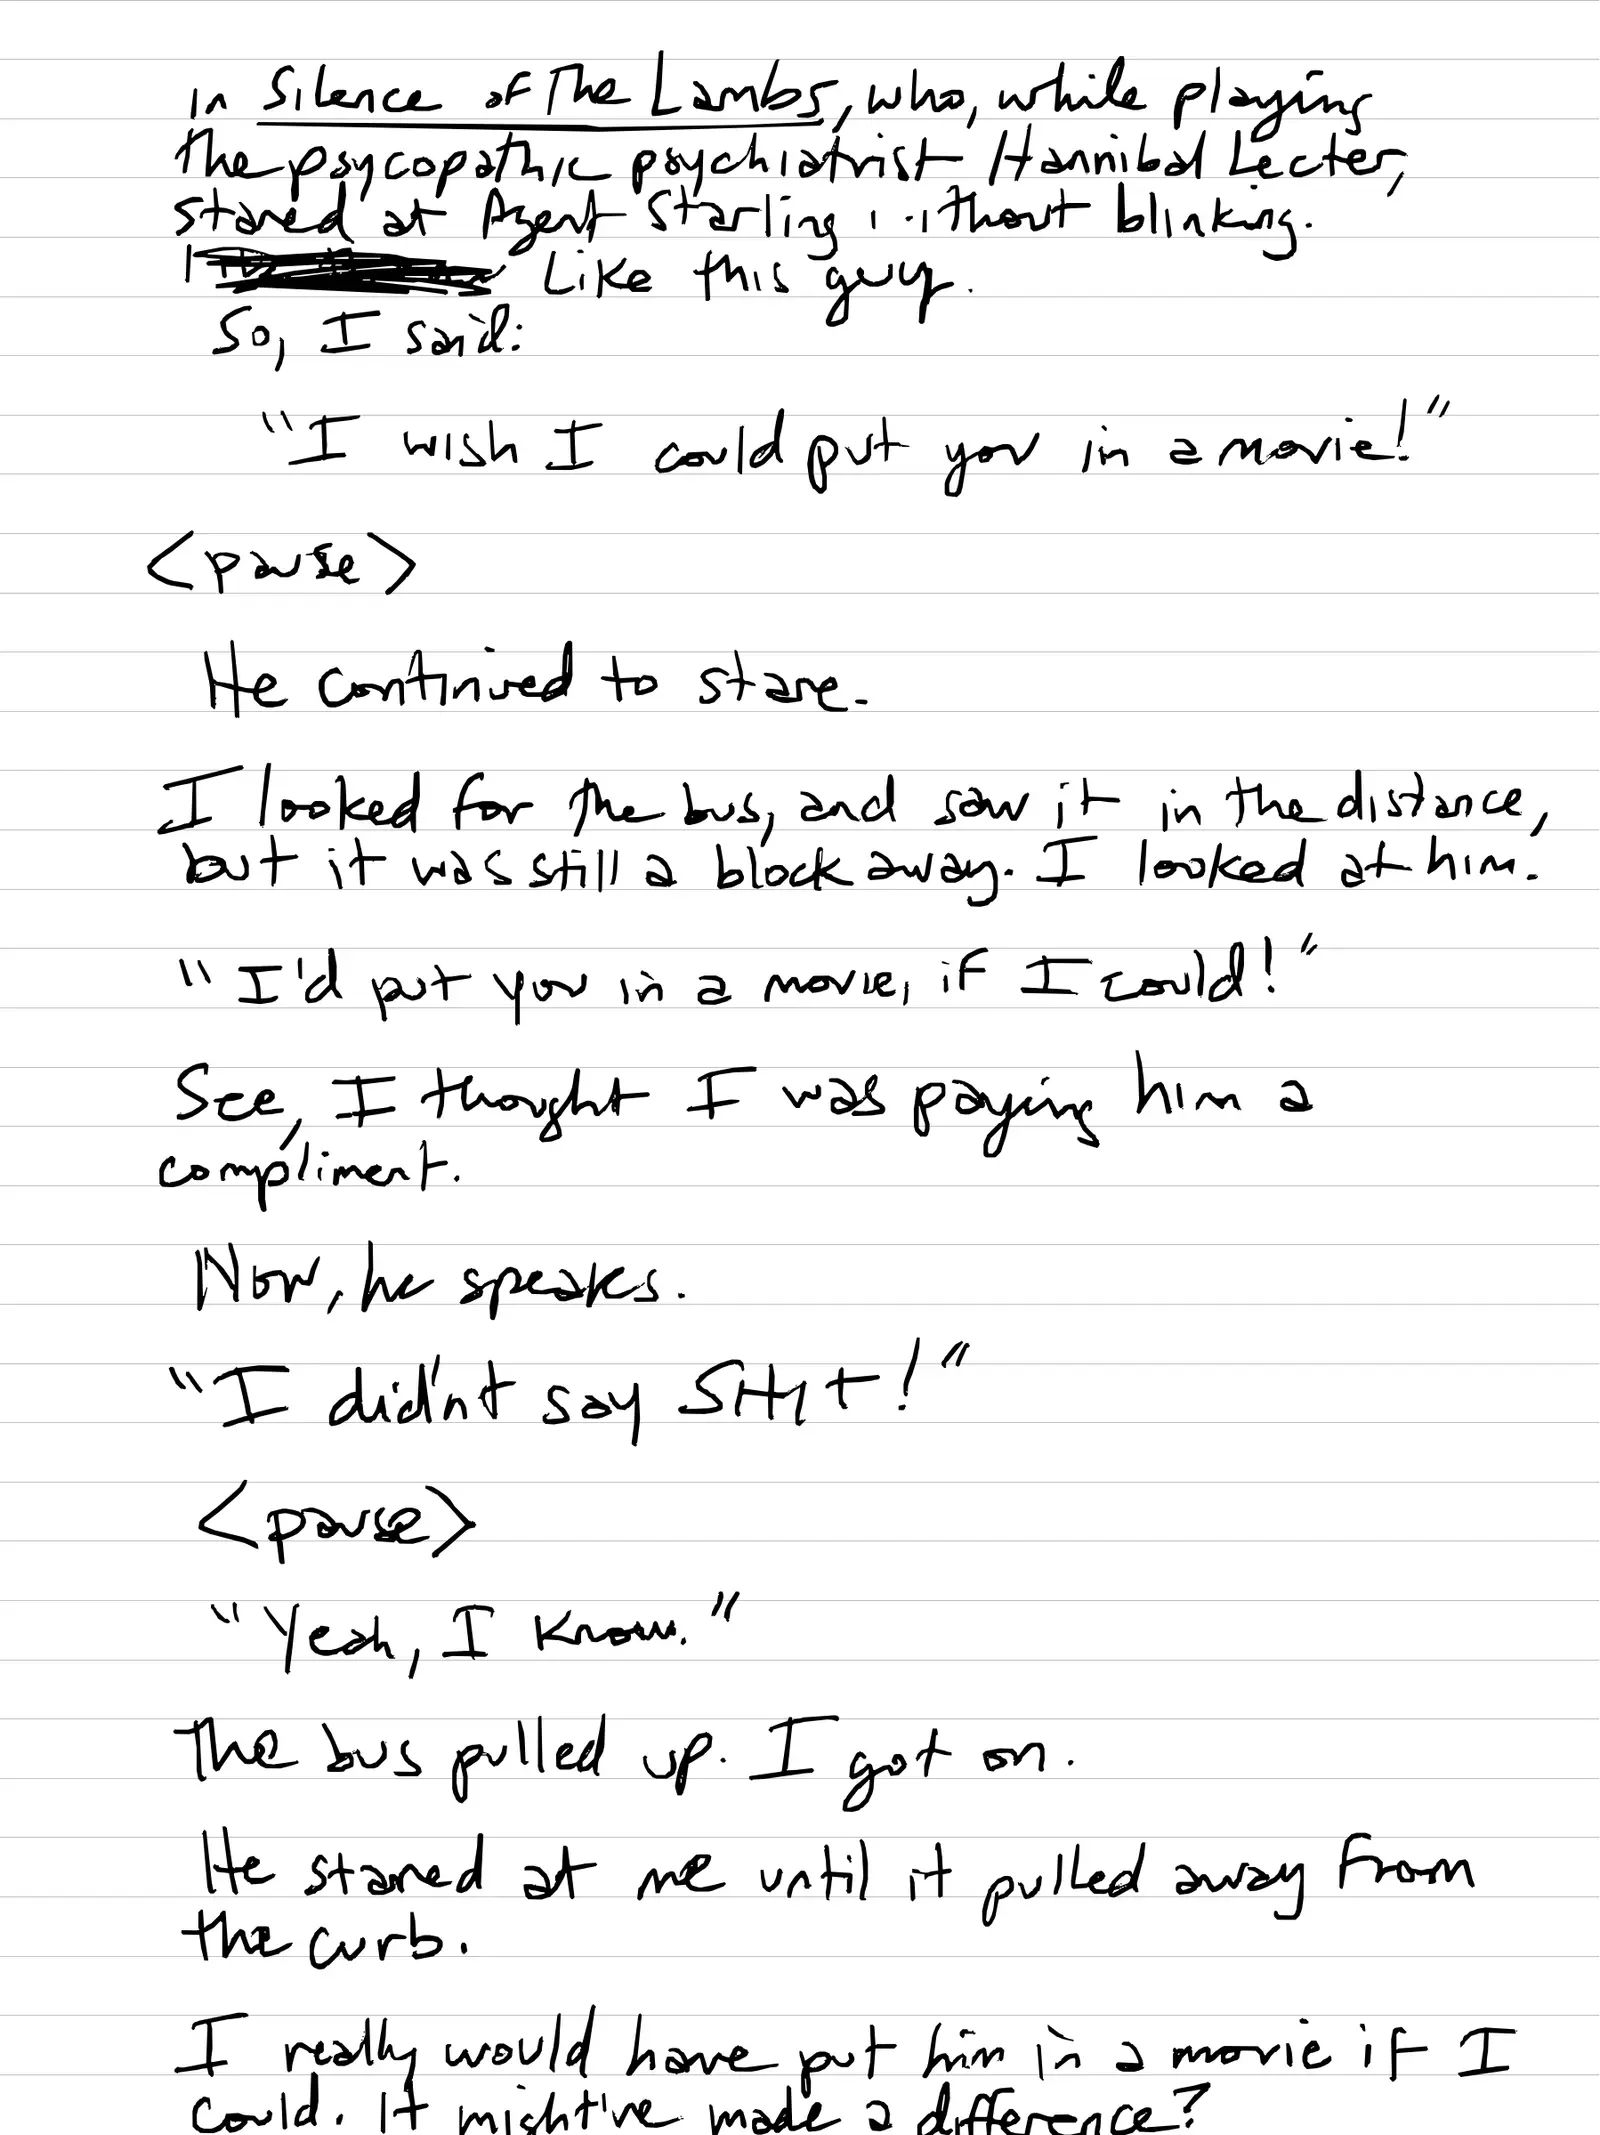 in Silence of The Lambs, who, while playing
the psycopathic psychiatrist Hannibal Lecter,
stared at Agent Starling without blinking.
Like this guy.
So, I said:
"I wish I could put you in a movie!"
<pause>
He continued to stare.
I looked for the bus, and saw it in the distance,
but it was still a block away. I looked at him.
"I'd put you in a movie, if I could!"
See, I thought I was paying him a
compliment.
Now, he speaks.
"I didn't say SHIT!"
<pause>
"Yeah, I know."
The bus pulled up. I got on.
He stared at me until it pulled away from
the curb.
I really would have put him in a movie if I
could. It might've made a difference?